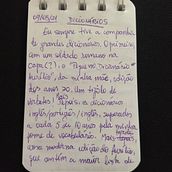 09/05/01 DICIONÁRIOS
Eu sempre tive a companhia
de grandes dicionários. O primeiro,
com um soldado romano na
capa (?), o "Pequeno Dicionário
da minha mãe, edição
dos anos 20. Um tijolo de
verbetes! Depois: os dicionários
inglês/português/inglês, superados
a cada 5 ou 10 anos pela minha
de vocabulário. Mais
uma moderna edição do Aurélio,
que contém a maior parte de